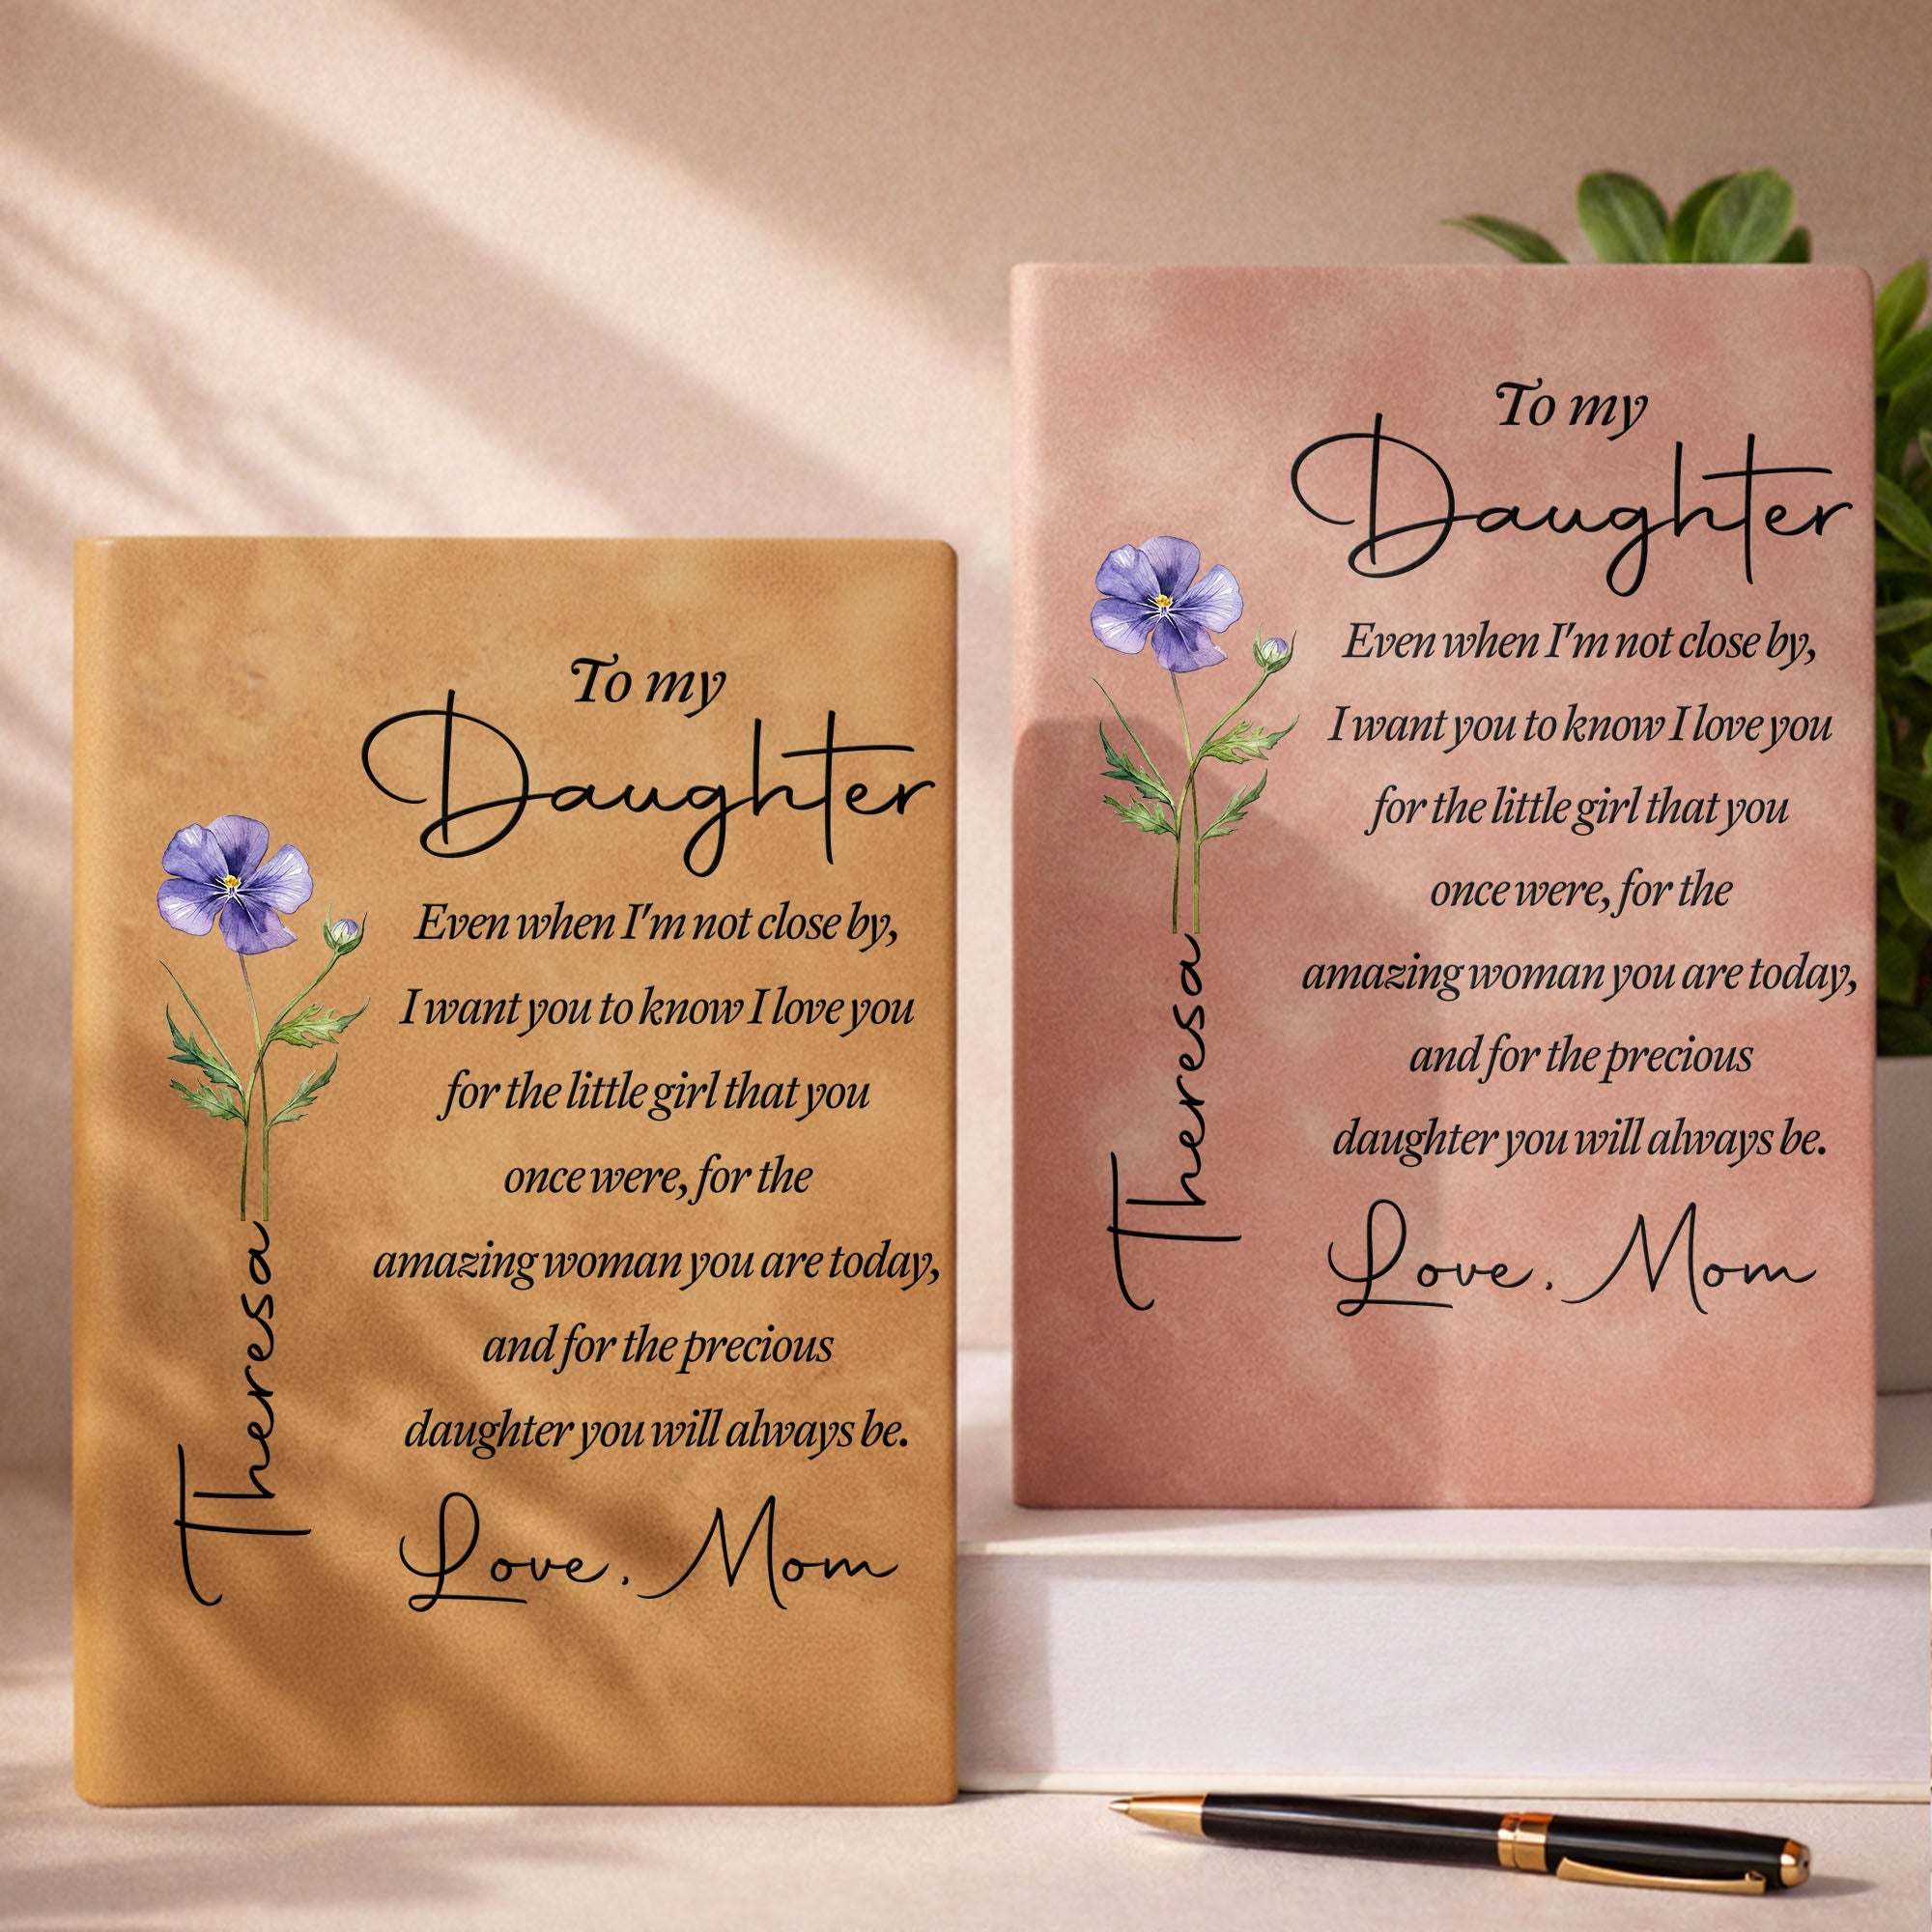 To my
Daughter
Even when I'm not close by,
I want you to know I love you
for the little girl that you
once were, for the
amazing woman you are today,
and for the precious
daughter you will always be.
Love, Mom
Theresa
To my
Daughter
Even when I'm not close by,
I want you to know I love you
for the little girl that you
once were, for the
amazing woman you are today,
and for the precious
daughter you will always be.
Love, Mom
Theresa